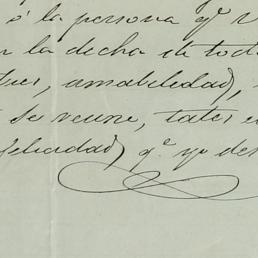 ó la persona qe
la dicha de tod
amabilidad,
se reune, tales
felicidad qe yo des